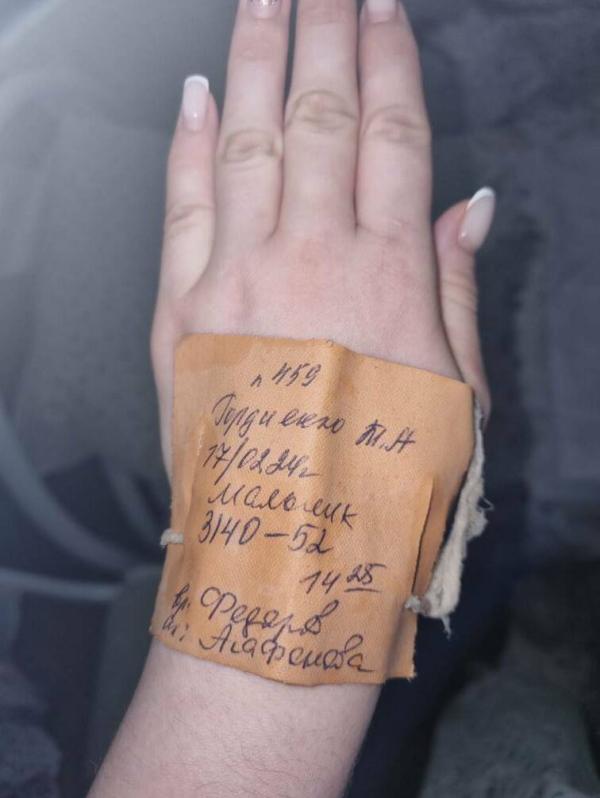 п 459
Гордиенко Т.А
17/02 24г
мальчик
3140-52
14 25
вр: Федоров
ак: Агафонова